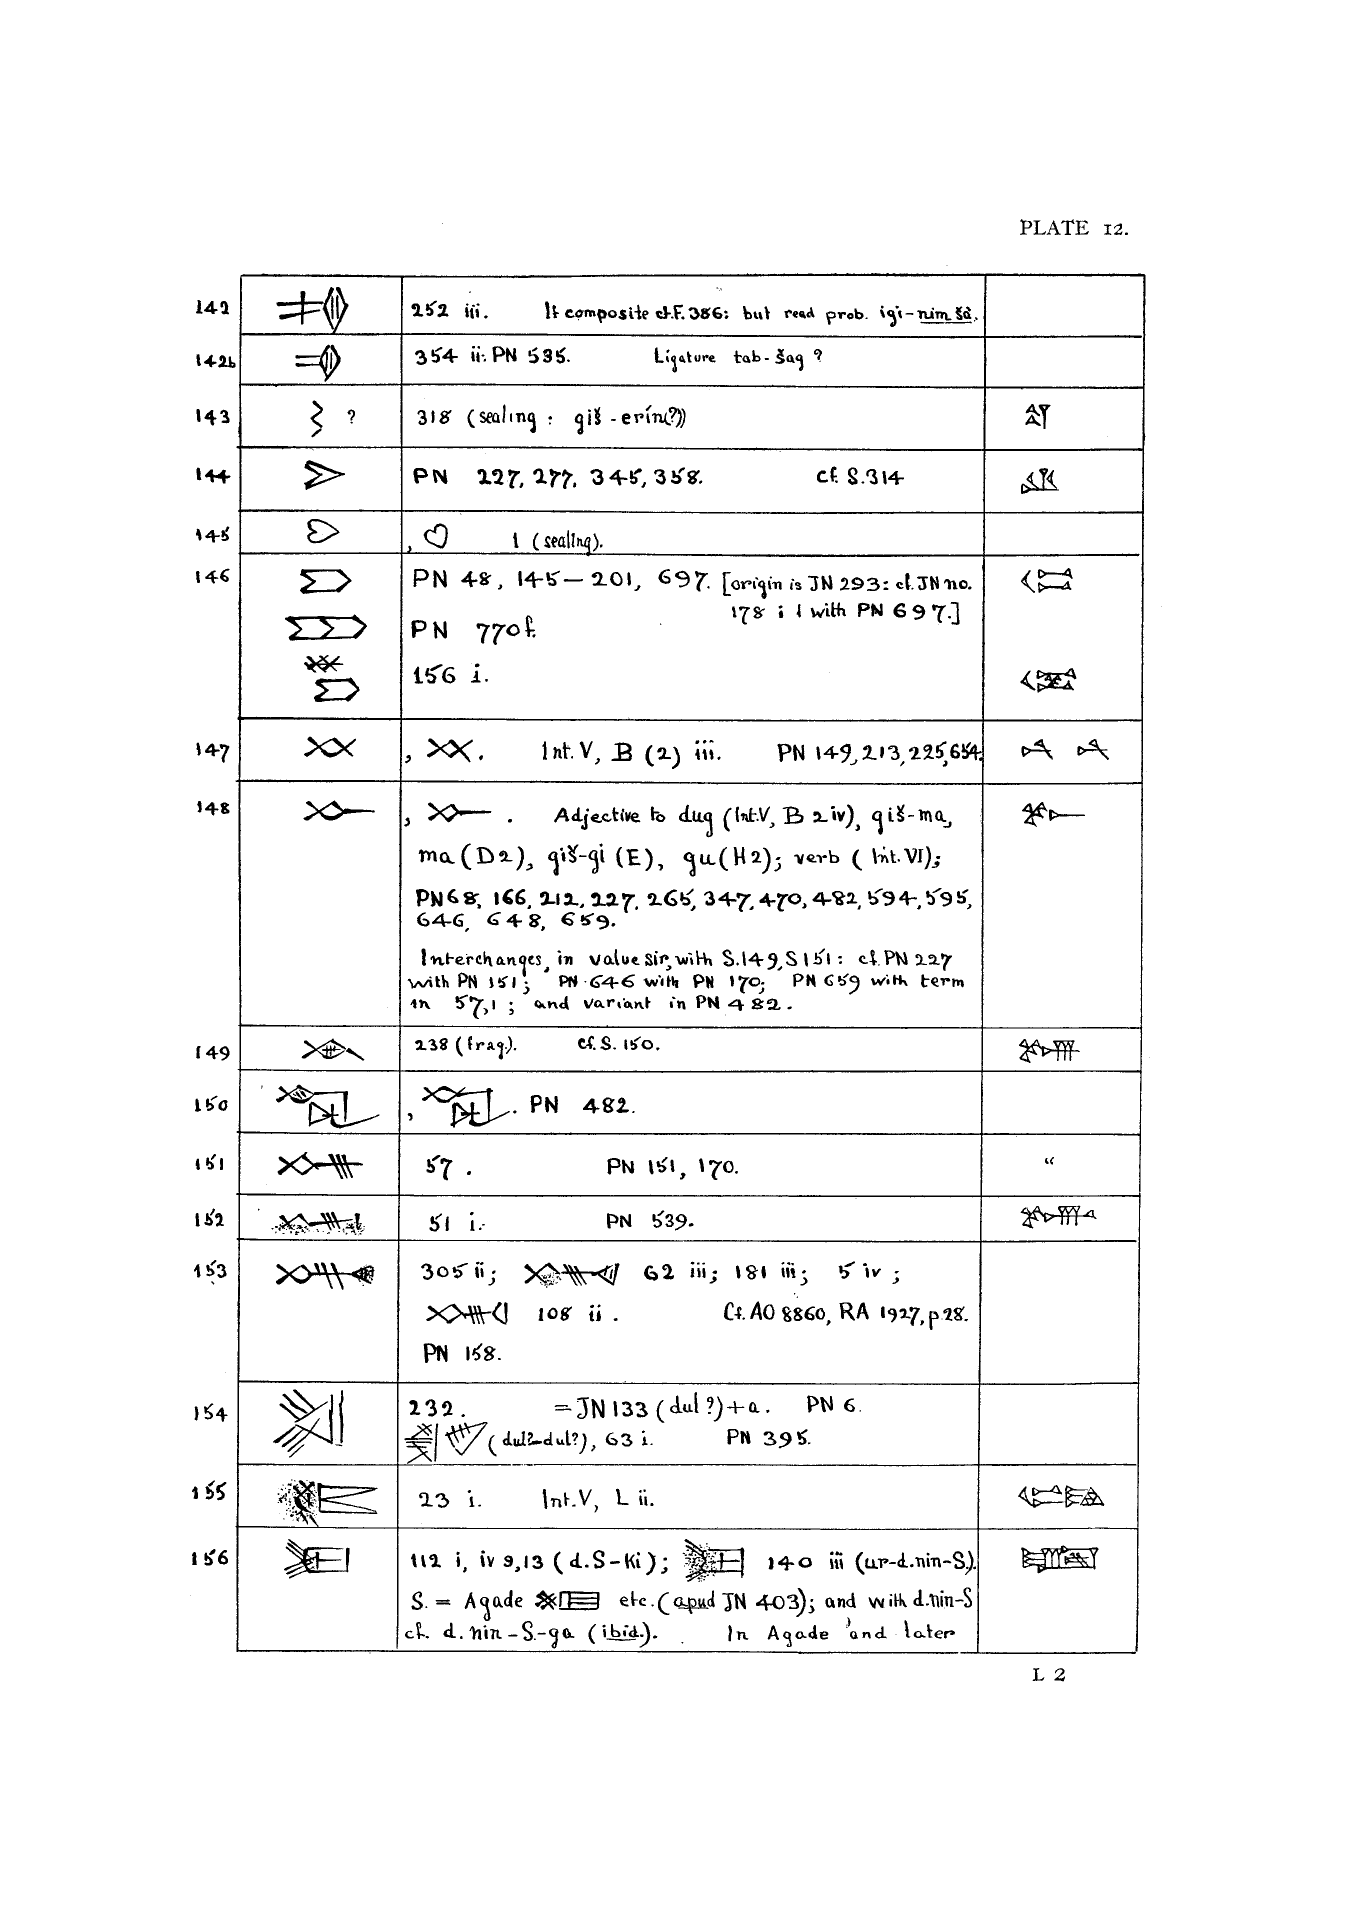 PLATE 12.
142 252 iii. If composite cf. F. 386: but read prob. igi-nim šà.
142b 354 ii. PN 535. Ligature tab-šag ?
143 ? 318 (sealing: giš-erín(?))
144 PN 227, 277, 345, 358. cf. S.314
145 , 1 (sealing).
146 PN 48, 145–201, 697. [origin is JN 293: cf. JN no.
178 i 1 with PN 697.]
PN 770f.
156 i.
147 , . Int. V, B (2) iii. PN 149, 213, 225, 654.
148 , . Adjective to dug (Int.V, B 2 iv), giš-ma,
ma (D2), giš-gi (E), gu (H2); verb (Int. VI);
PN 68, 166, 212, 227, 265, 347, 470, 482, 594, 595,
646, 648, 659.
Interchanges, in value sir, with S.149, S 151: cf. PN 227
with PN 151; PN 646 with PN 170; PN 659 with term
in 57, 1; and variant in PN 482.
149 238 (frag.). cf. S. 150.
150 , . PN 482.
151 57. PN 151, 170. "
152 51 i. PN 539.
153 305 ii; 62 iii; 181 iii; 5 iv;
108 ii. Cf. AO 8860, RA 1927, p 28.
PN 158.
154 232. = JN 133 (dul ?)+a. PN 6.
(dul?-dul?), 63 i. PN 395.
155 23 i. Int. V, L ii.
156 112 i, iv 9,13 (d.S-Ki); 140 iii (ur-d.nin-S.).
S. = Agade etc. (apud JN 403); and with d.nin-S
cf. d.nin-S.-ga (ibid.). In Agade and later
L 2